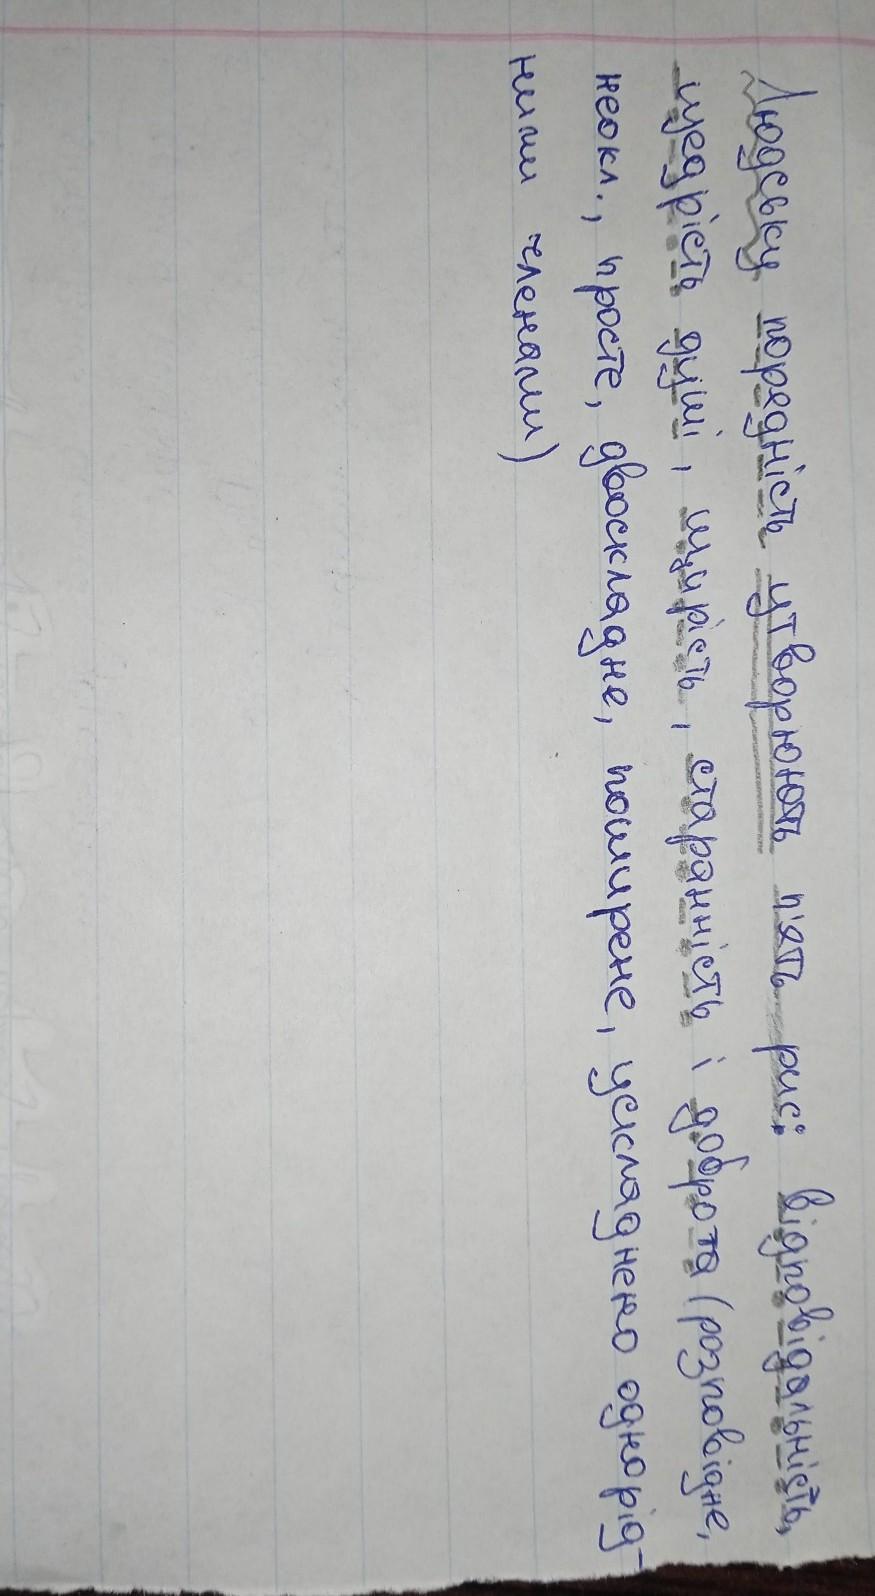 Людську порядність утворюють п'ять рис: відповідальність,
щедрість душі, щирість, старанність і доброта (розповідне,
неокл., просте, двоскладне, поширене, ускладнено однорід-
ними членами)